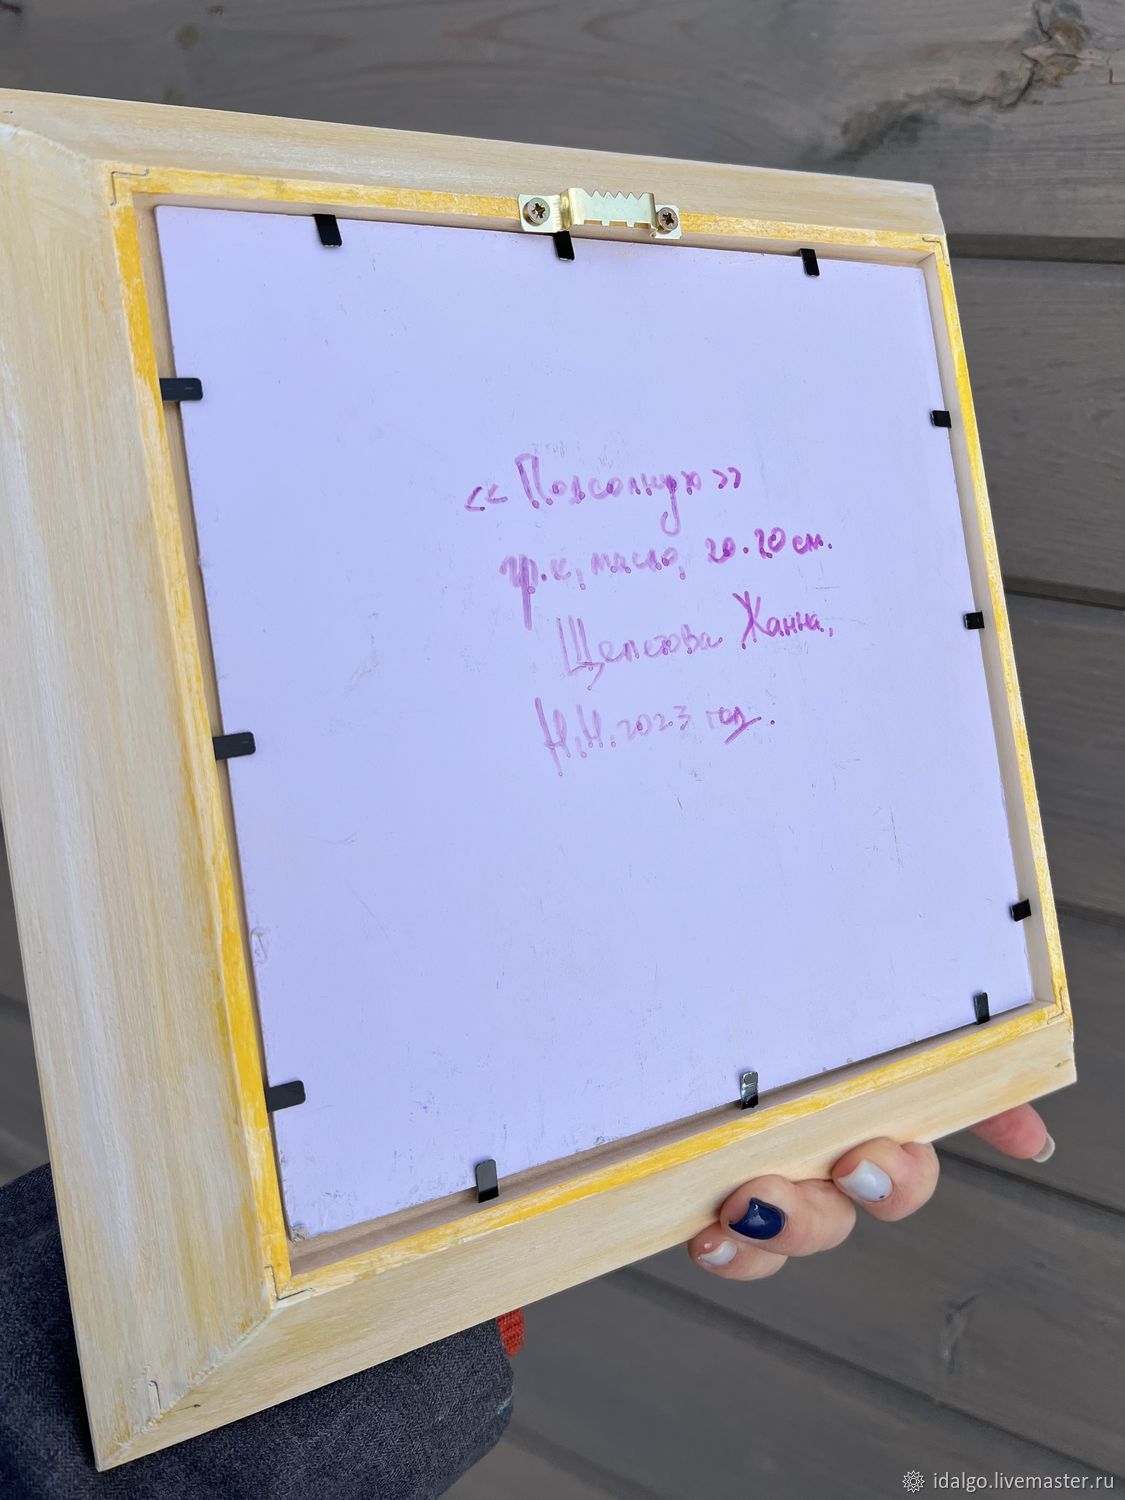 «Подсолнух»
гр.к, масло, 20·20 см.
Жанна,
Н.Н. 2023 год.
idalgo.livemaster.ru